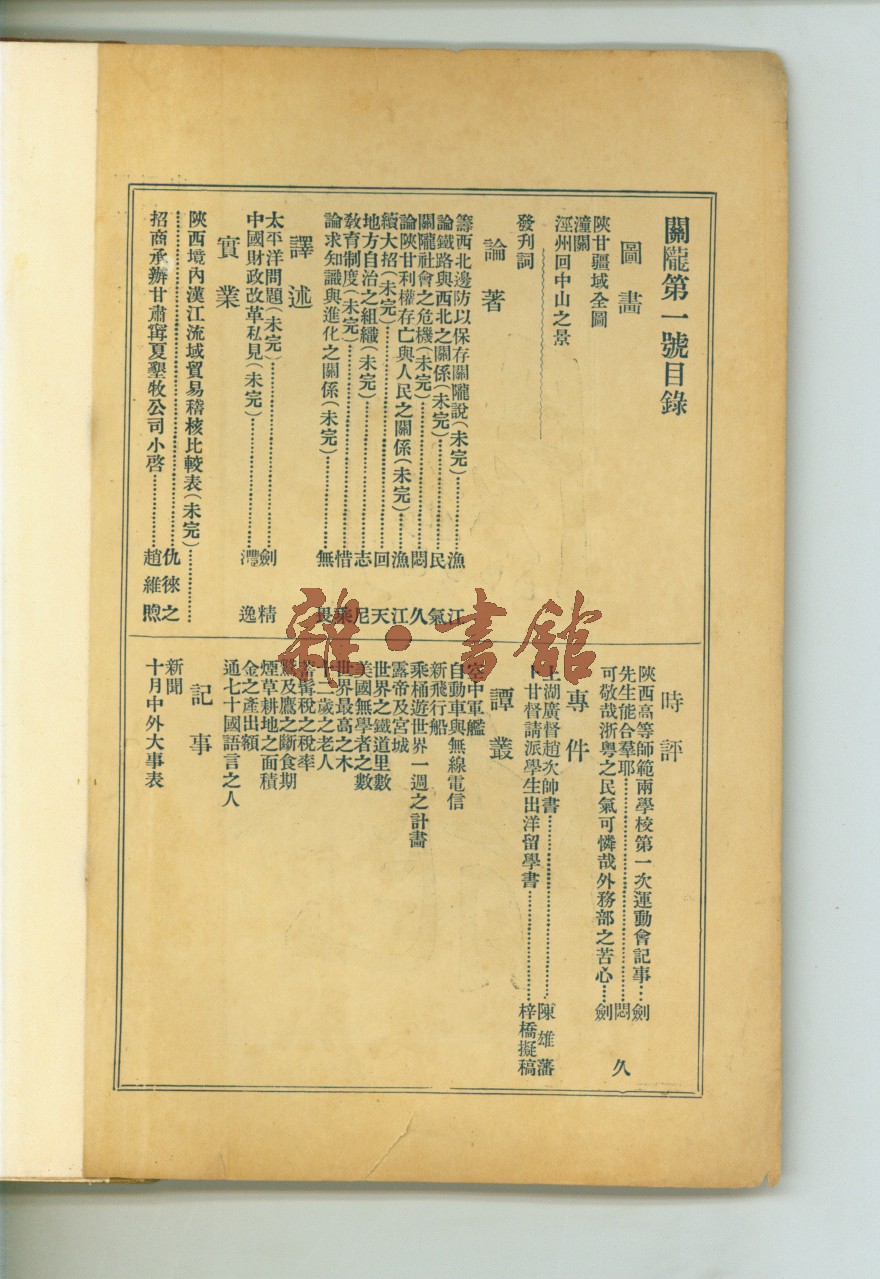 關隴第一號目錄
圖畫
陝甘疆域全圖
潼關
涇州回中山之景
發刊詞
論著
籌西北邊防以保存關隴說(未完)漁江
論鐵路與西北之關係(未完)民氣
關隴社會之危機(未完)悶久
論陝甘利權存亡與人民之關係(未完)漁江
續大招(未完)回天
地方自治之組織(未完)志尼
教育制度(未完)惜乘
論求知識與進化之關係(未完)無畏
譯述
太平洋問題(未完)劍精
中國財政改革私見(未完)灃逸
實業
陝西境內漢江流域貿易稽核比較表(未完)
仇徠之
招商承辦甘肅甯夏墾牧公司小啓趙維煦
時評
陝西高等師範兩學校第一次運動會記事劍
先生能合羣耶悶久
可敬哉浙粵之民氣可憐哉外務部之苦心劍
專件
上湖廣督趙次帥書陳雄藩
上甘督請派學生出洋留學書梓橋擬稿
譚叢
空中軍艦
自動車與無線電信
新飛行船
乘桶遊世界一週之計畫
露帝及宮城
世界之鐵道里數
美國無學者之數
世界最高之木
十二歲之老人
蓄髯稅之稅率
鷲及鷹之斷食期
煙草耕地之面積
金之產出額
通七十國語言之人
記事
新聞
十月中外大事表
雜·書館